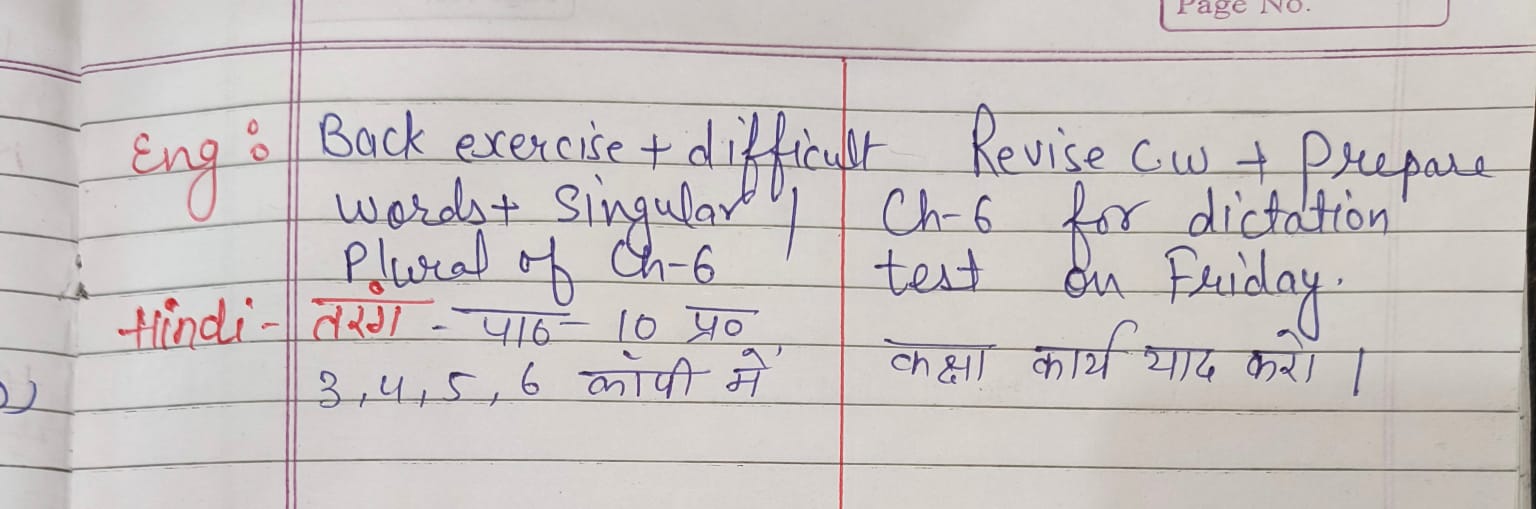 Page No.
Eng :
Back exercise + difficult
words + Singular /
Plural of Ch-6
Revise CW + Prepare
Ch-6 for dictation
test on Friday.
Hindi -
तरंग - पाठ - 10 प्र०
3, 4, 5, 6 कॉपी में
कक्षा कार्य याद करो ।